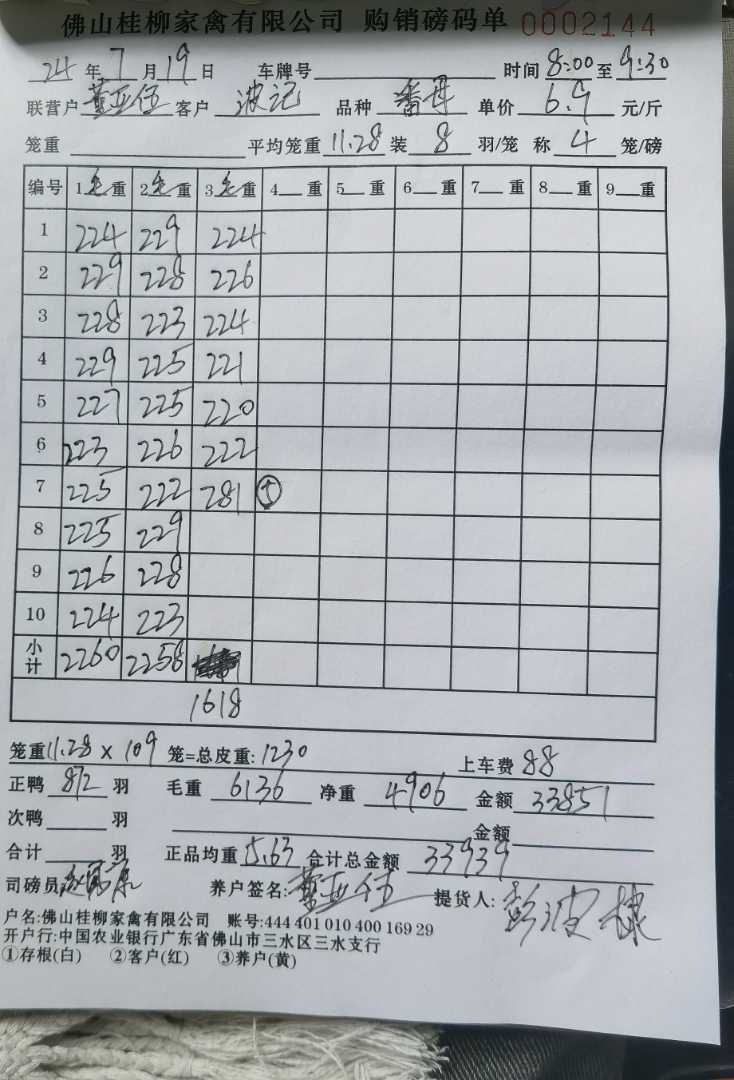 佛山桂柳家禽有限公司 购销磅码单 0002144
24 年 7 月 19 日 车牌号 时间 8:00 至 9:30
联营户 董亚伍 客户 波记 品种 番母 单价 6.9 元/斤
笼重 平均笼重 11.28 装 8 羽/笼 称 4 笼/磅
编号 1 毛 重 2 毛 重 3 毛 重 4 重 5 重 6 重 7 重 8 重 9 重
1 224 229 224
2 229 228 226
3 228 223 224
4 229 225 221
5 227 225 220
6 223 226 222
7 225 222 281 ⑤
8 225 229
9 226 228
10 224 223
小计 2260 2258
1618
笼重 11.28 × 109 笼=总皮重: 1230 上车费 88
正鸭 872 羽 毛重 6136 净重 4906 金额 33851
次鸭 羽 金额
合计 羽 正品均重 5.63 合计总金额 33939
司磅员 养户签名: 董亚伍 提货人: 彭波棣
户名:佛山桂柳家禽有限公司 账号:444 401 010 400 169 29
开户行:中国农业银行广东省佛山市三水区三水支行
①存根(白) ②客户(红) ③养户(黄)